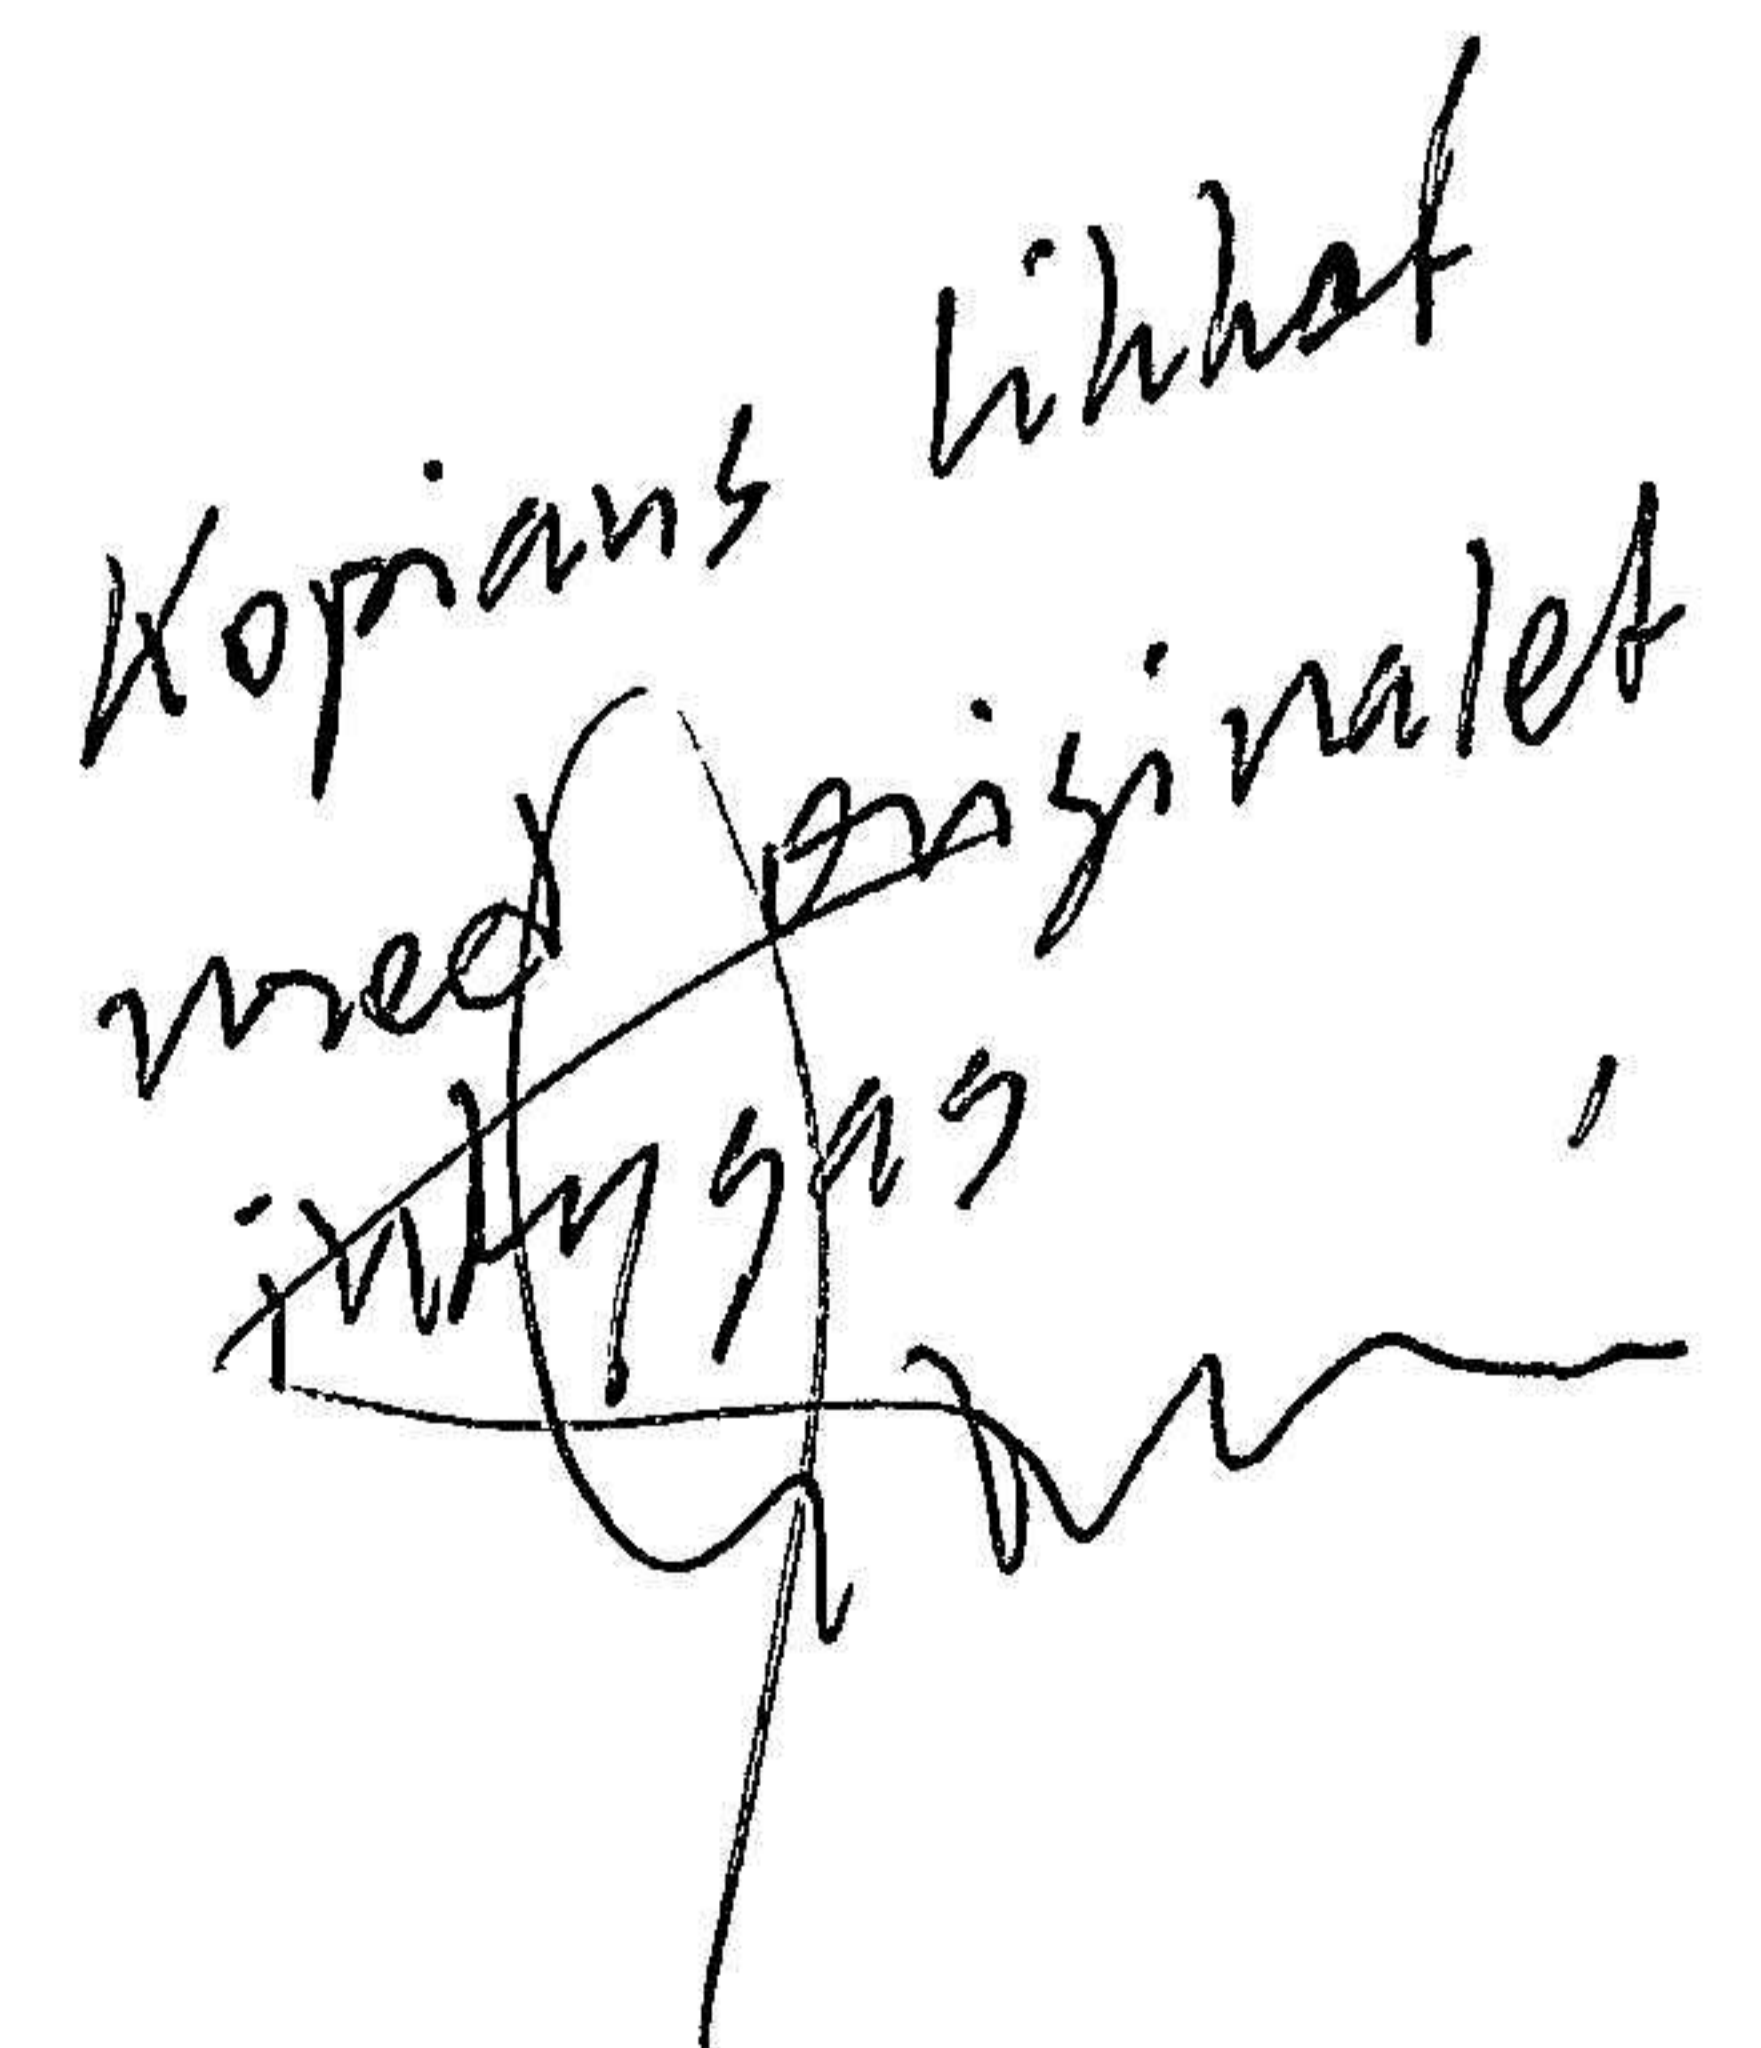 Kopians likhet
med originalet
intygas